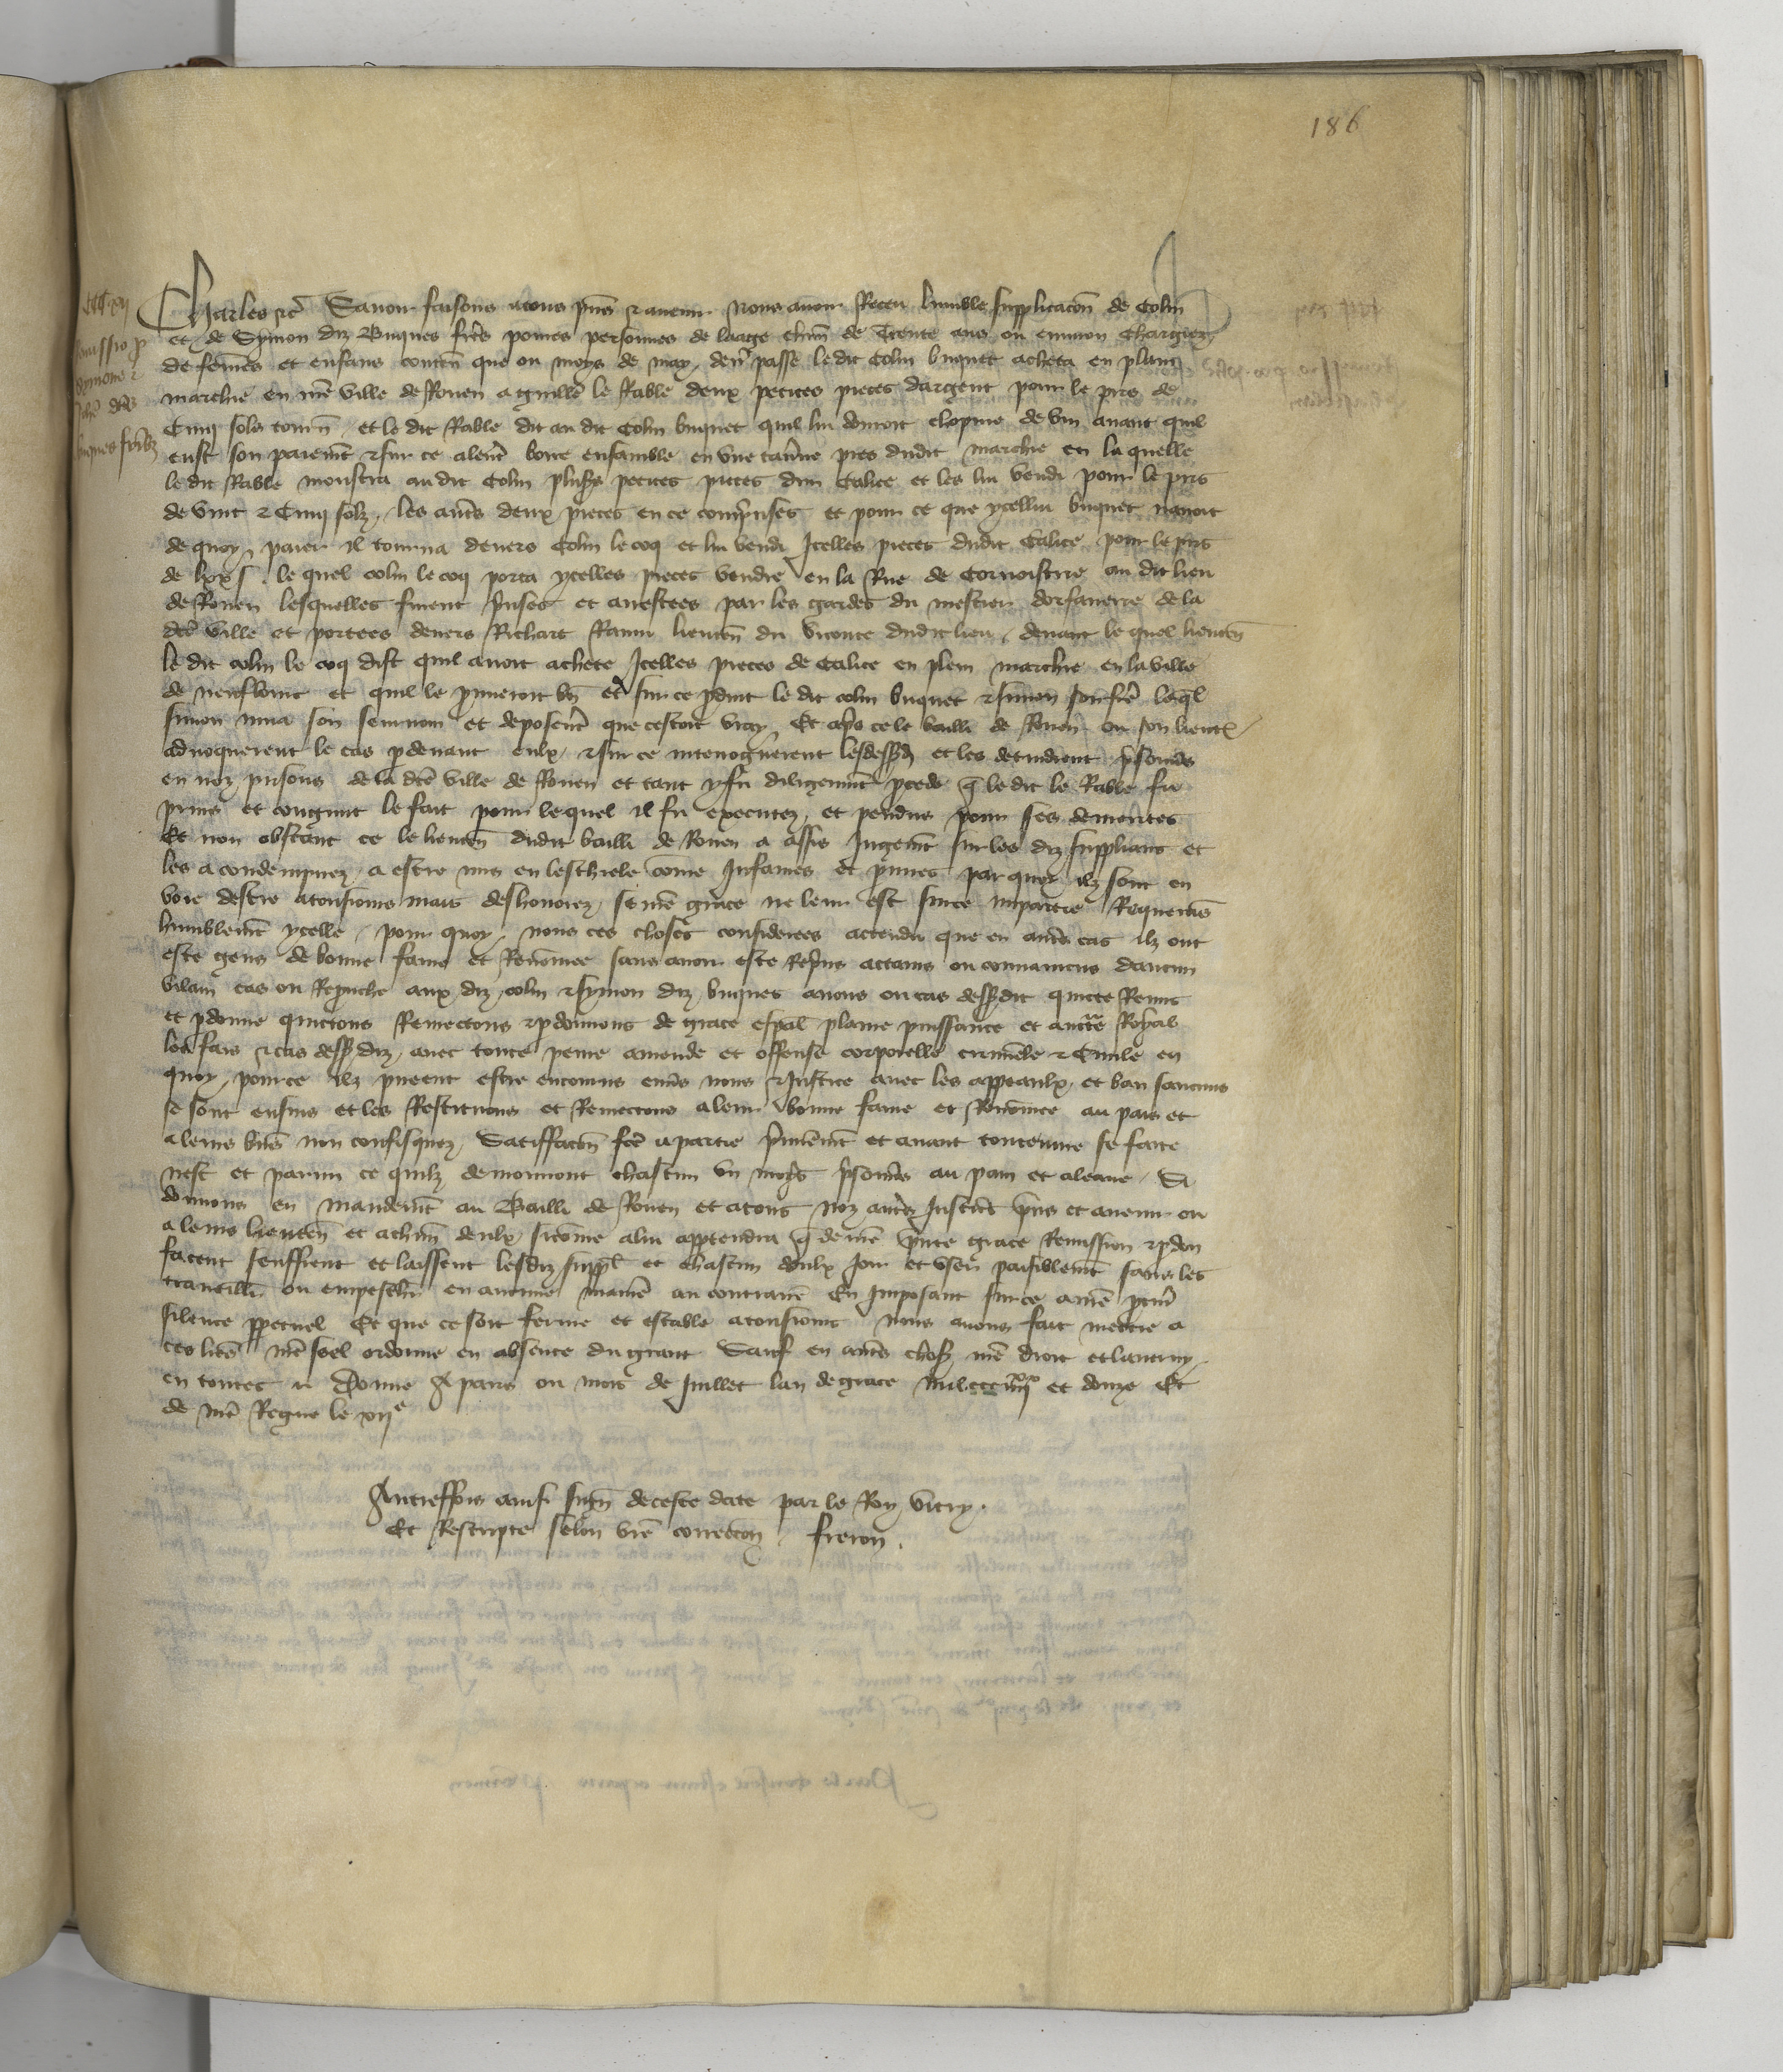 186
Charles etc Savoir faisons a tous pns & avenir Nous avoir Receu humble supplicacon de Colin
et de Symon diz Buques freres povres personnes de laage chun de Trente ans ou environ Chargiez
de femes et enfans conten que ou moys de may dern passe le dit Colin buquet acheta en plain
marchie en nre ville de Rouen a guille le Rable deux petites pieces dargent pour le pris de
Cinq solz tourn et le dit Rable dit au dit Colin buquet quil lui donroit chopine de vin avant quil
eust son paiemt & sur ce alerent boire ensamble en une taverne pres dudit marchie en la quelle
le dit Rable monstra au dit Colin plusrs petites pieces dun Calice et les lui vendi pour le pris
de vint & Cinq solz les autres deux pieces en ce comprises et pour ce que ycellui buquet navoit
de quoy paier il tourna devers Colin le coq et lui vendi Icelles pieces dudit Calice pour le pris
de lxx s le quel colin le coq porta ycelles pieces vendre en la Rue de Cornoistrie au dit lieu
de Rouen lesquelles furent prises et arrestees par les gardes du mestier dorfaverie de la
dce ville et portees devers Richart Raoun lieuten du viconte dudit lieu devant le quel lieuten
le dit colin le coq dist quil avoit achete Icelles pieces de Calice en plein marchie en la ville
de neufbourc et quil le prouveroit bn Et sur ce pduit le dit colin buquet & simon son frere leql
simon mua son seurnom et deposerent que cestoit vray Et apres ce le bailli de Rouen ou son lieut
advoquerent le cas pdevant eulx & sur ce interroguerent les dessusd et les detindrent prisoners
en noz prisons de la dce ville de Rouen et tant y fu diligemmt procede q le dit le Rable fu
prins et congnut le fait pour lequel il fu executez et pendus pour ses demerites
Et non obstant ce le lieuten dudit bailli de Rouen a assis Jugemt sur les diz supplians et
les a condempnez a estre mis en leschiele come Infames et prives par quoy ilz sont en
voie destre a tousjours mais deshonorez se nre grace ne leur est sur ce impartie Requerans
humblemt ycelle pour quoy nous ces choses considerees attendu que en autres cas ilz ont
este gens de bonne fame et Renomee sans avoir este Repris attains ou convaincus daucun
vilain cas ou Reprouche aux diz colin & symon diz buques avons ou cas dessusdit quicte Remis
et pdonne quictons Remectons & pdonnons de grace espal plaine puissance et auctte Royal
les fais & cas dessusdiz avec toute peine amende et offense corporelle criminele & Civile en
quoy pour ce ilz pueent estre encourus envers nous & Justice avec les appeaulx et ban saucuns
se sont ensuis et les Restituons et Remectons a leur bonne fame et Renomee au pais et
a leurs biens non confisquez Satiffacon fce a partie primemt et avant toute euvre se faite
nest et parmi ce quilz demourront chascun un moys prisoners au pain et a leaue Si
donnons en mandemt au Bailli de Rouen et a tous noz autres Justicrs pns et avenir ou
a leurs lieuten et a chun deulx sicome a lui apptendra q de nre pnte grace Remission & pdon
facent seuffrent et laissent lesdiz suppl et chascun deulx Joir et user paisiblemt sans les
travaillr ou empeschr en aucune maniere au contraire En Imposant sur ce a nre pcur
silence ppetuel Et que ce soit ferme et estable a tousjours nous avons fait mettre a
ces lres nre seel ordonne en absence du grant Sauf en autres choses nre droit et lautruy
en toutes etc Donne A paris ou mois de Juillet lan de grace mil ccc iiiixx et douze Et
de nre Regne le xiie
Autreffois ainsi sign de ceste date par le Roy vitry
Et Rescripte selon vre correccon freron